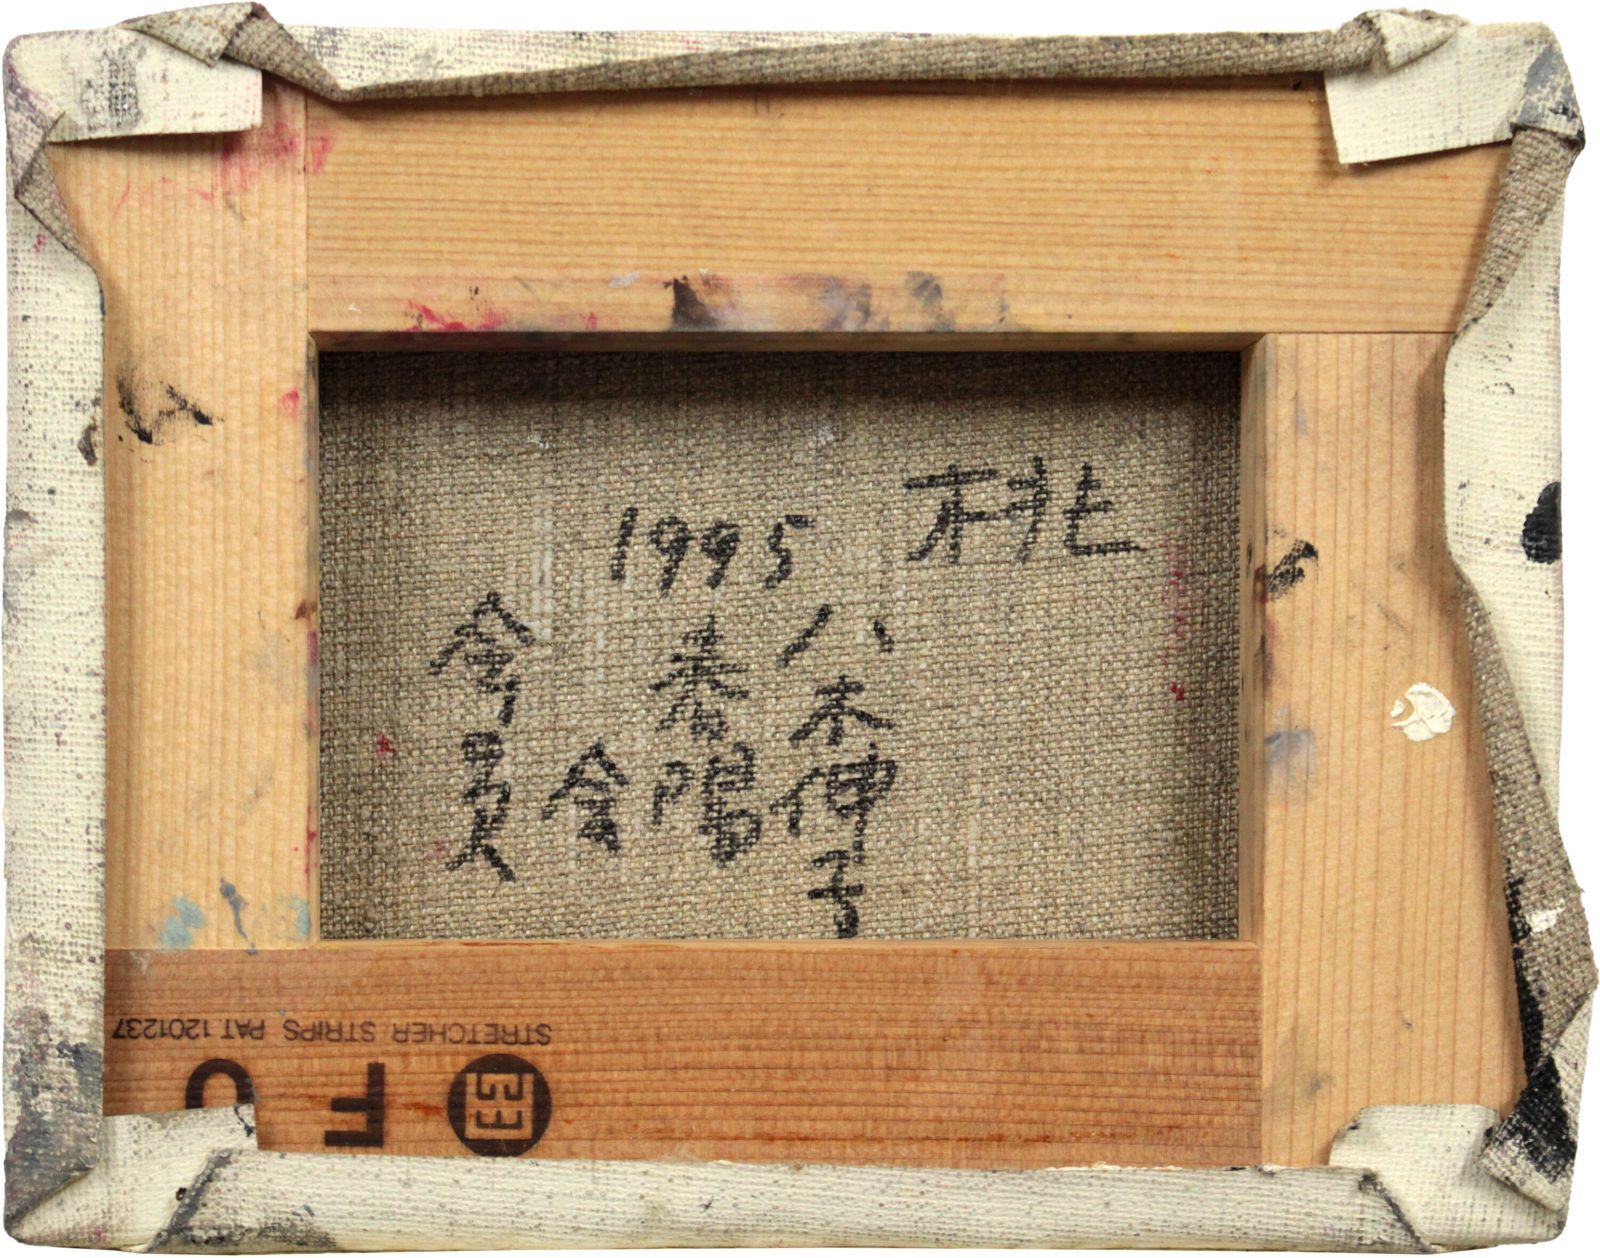 桃
1995
八木伸子
春陽会
会員
STRETCHER STRIPS PAT 1201237
F